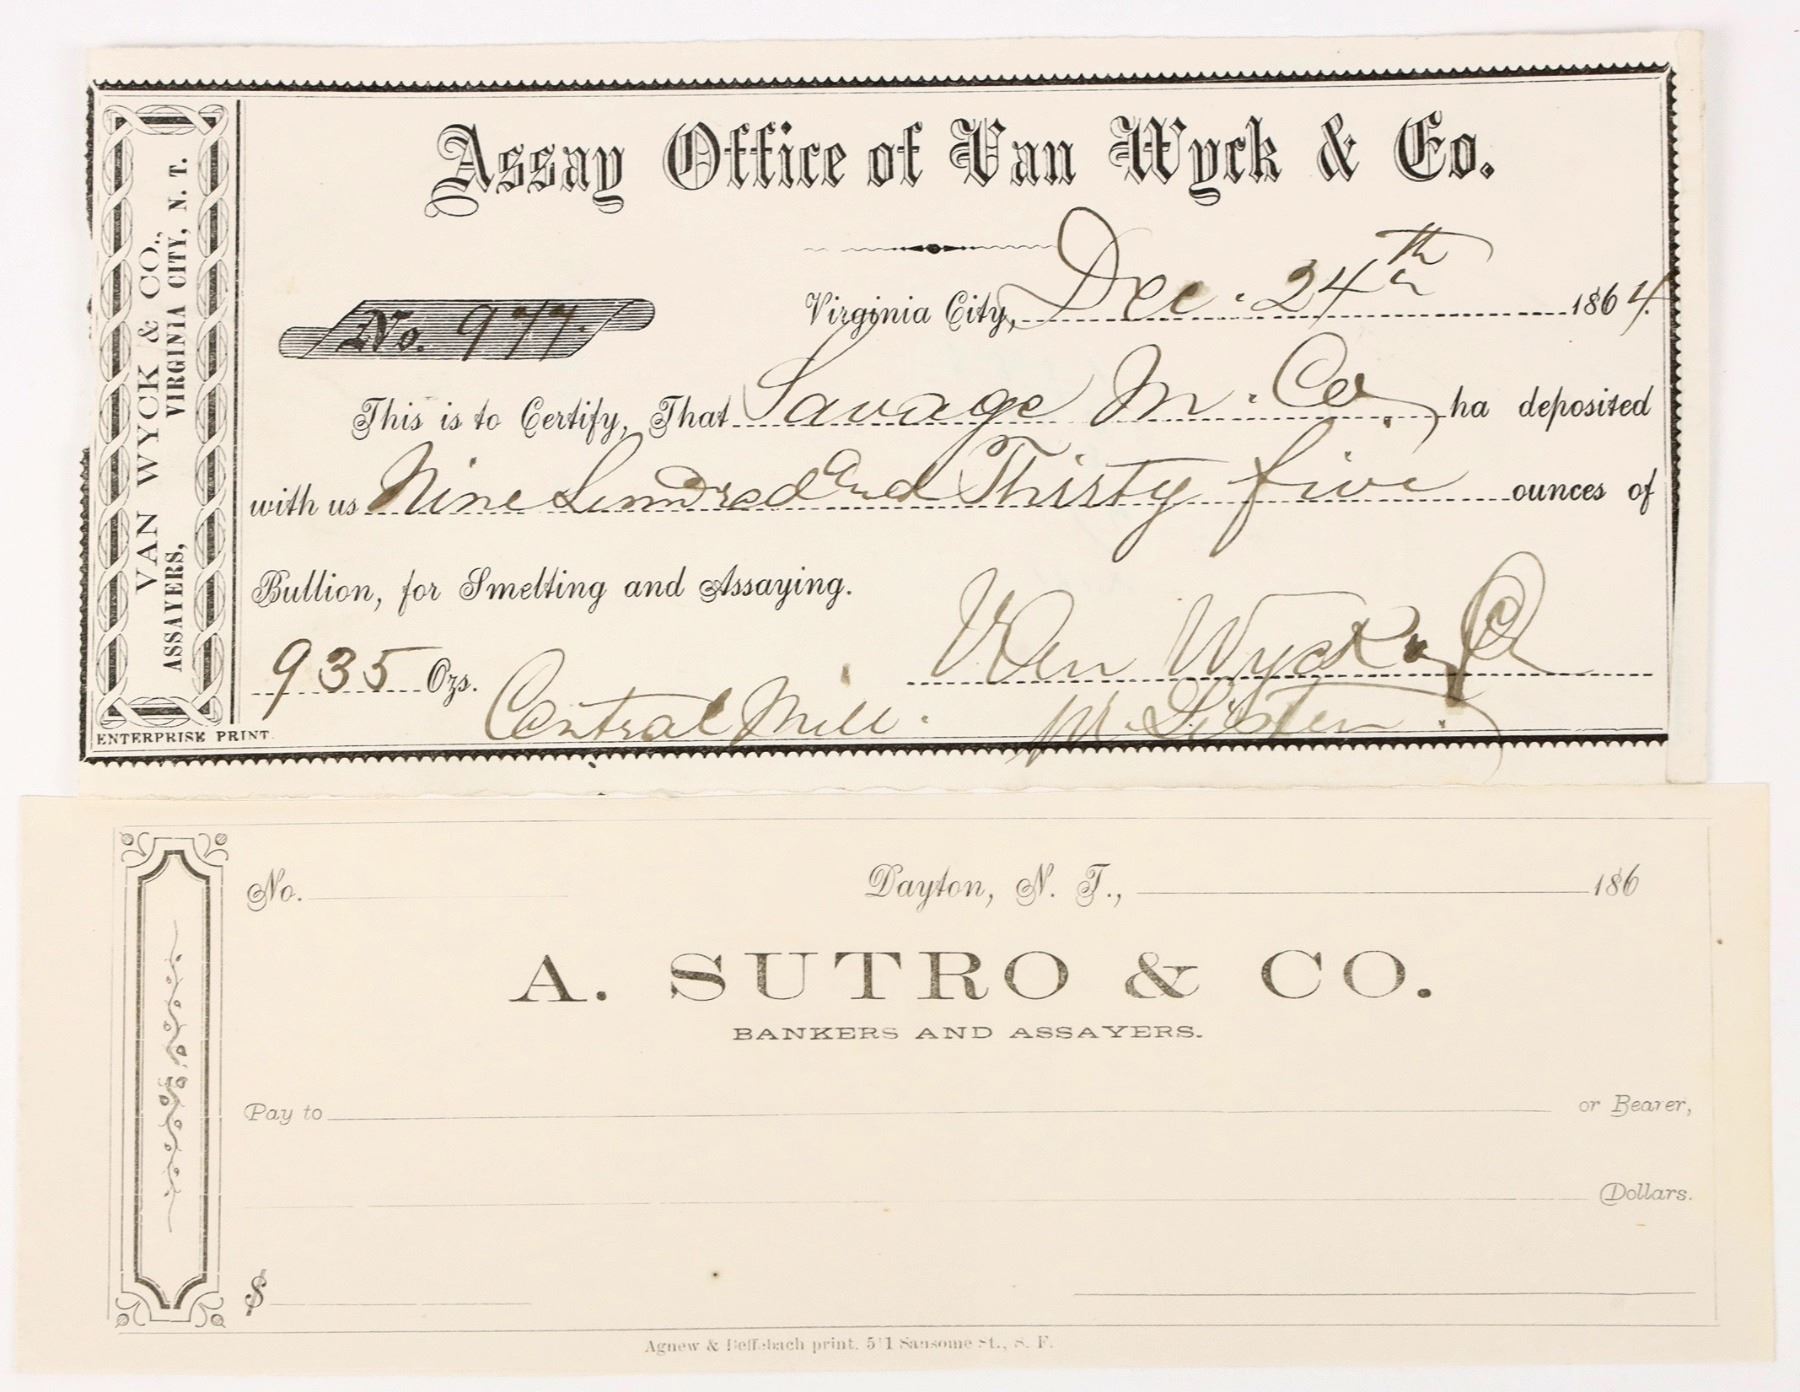 Assay Office of Van Wyck & Co.
VAN WYCK & CO.,
ASSAYERS, VIRGINIA CITY, N. T.
No. 977.
Virginia City, Dec. 24th 1864.
This is to Certify, That Savage M. Co. ha deposited
with us Nine Hundred and Thirty five ounces of
Bullion, for Smelting and Assaying.
Van Wyck & Co
935 Ozs.
Central Mill. M.
ENTERPRISE PRINT.
No. Dayton, N. T., 186
A. SUTRO & CO.
BANKERS AND ASSAYERS.
Pay to or Bearer,
Dollars.
$
Agnew & print, Sansome St., S. F.